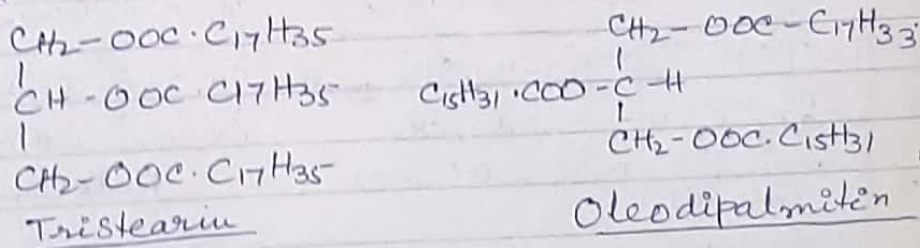 CH2-OOC·C17H35
CH-OOC C17H35
CH2-OOC·C17H35
Tristearin
CH2-OOC-C17H33
C15H31·COO-C-H
CH2-OOC·C15H31
Oleodipalmitin